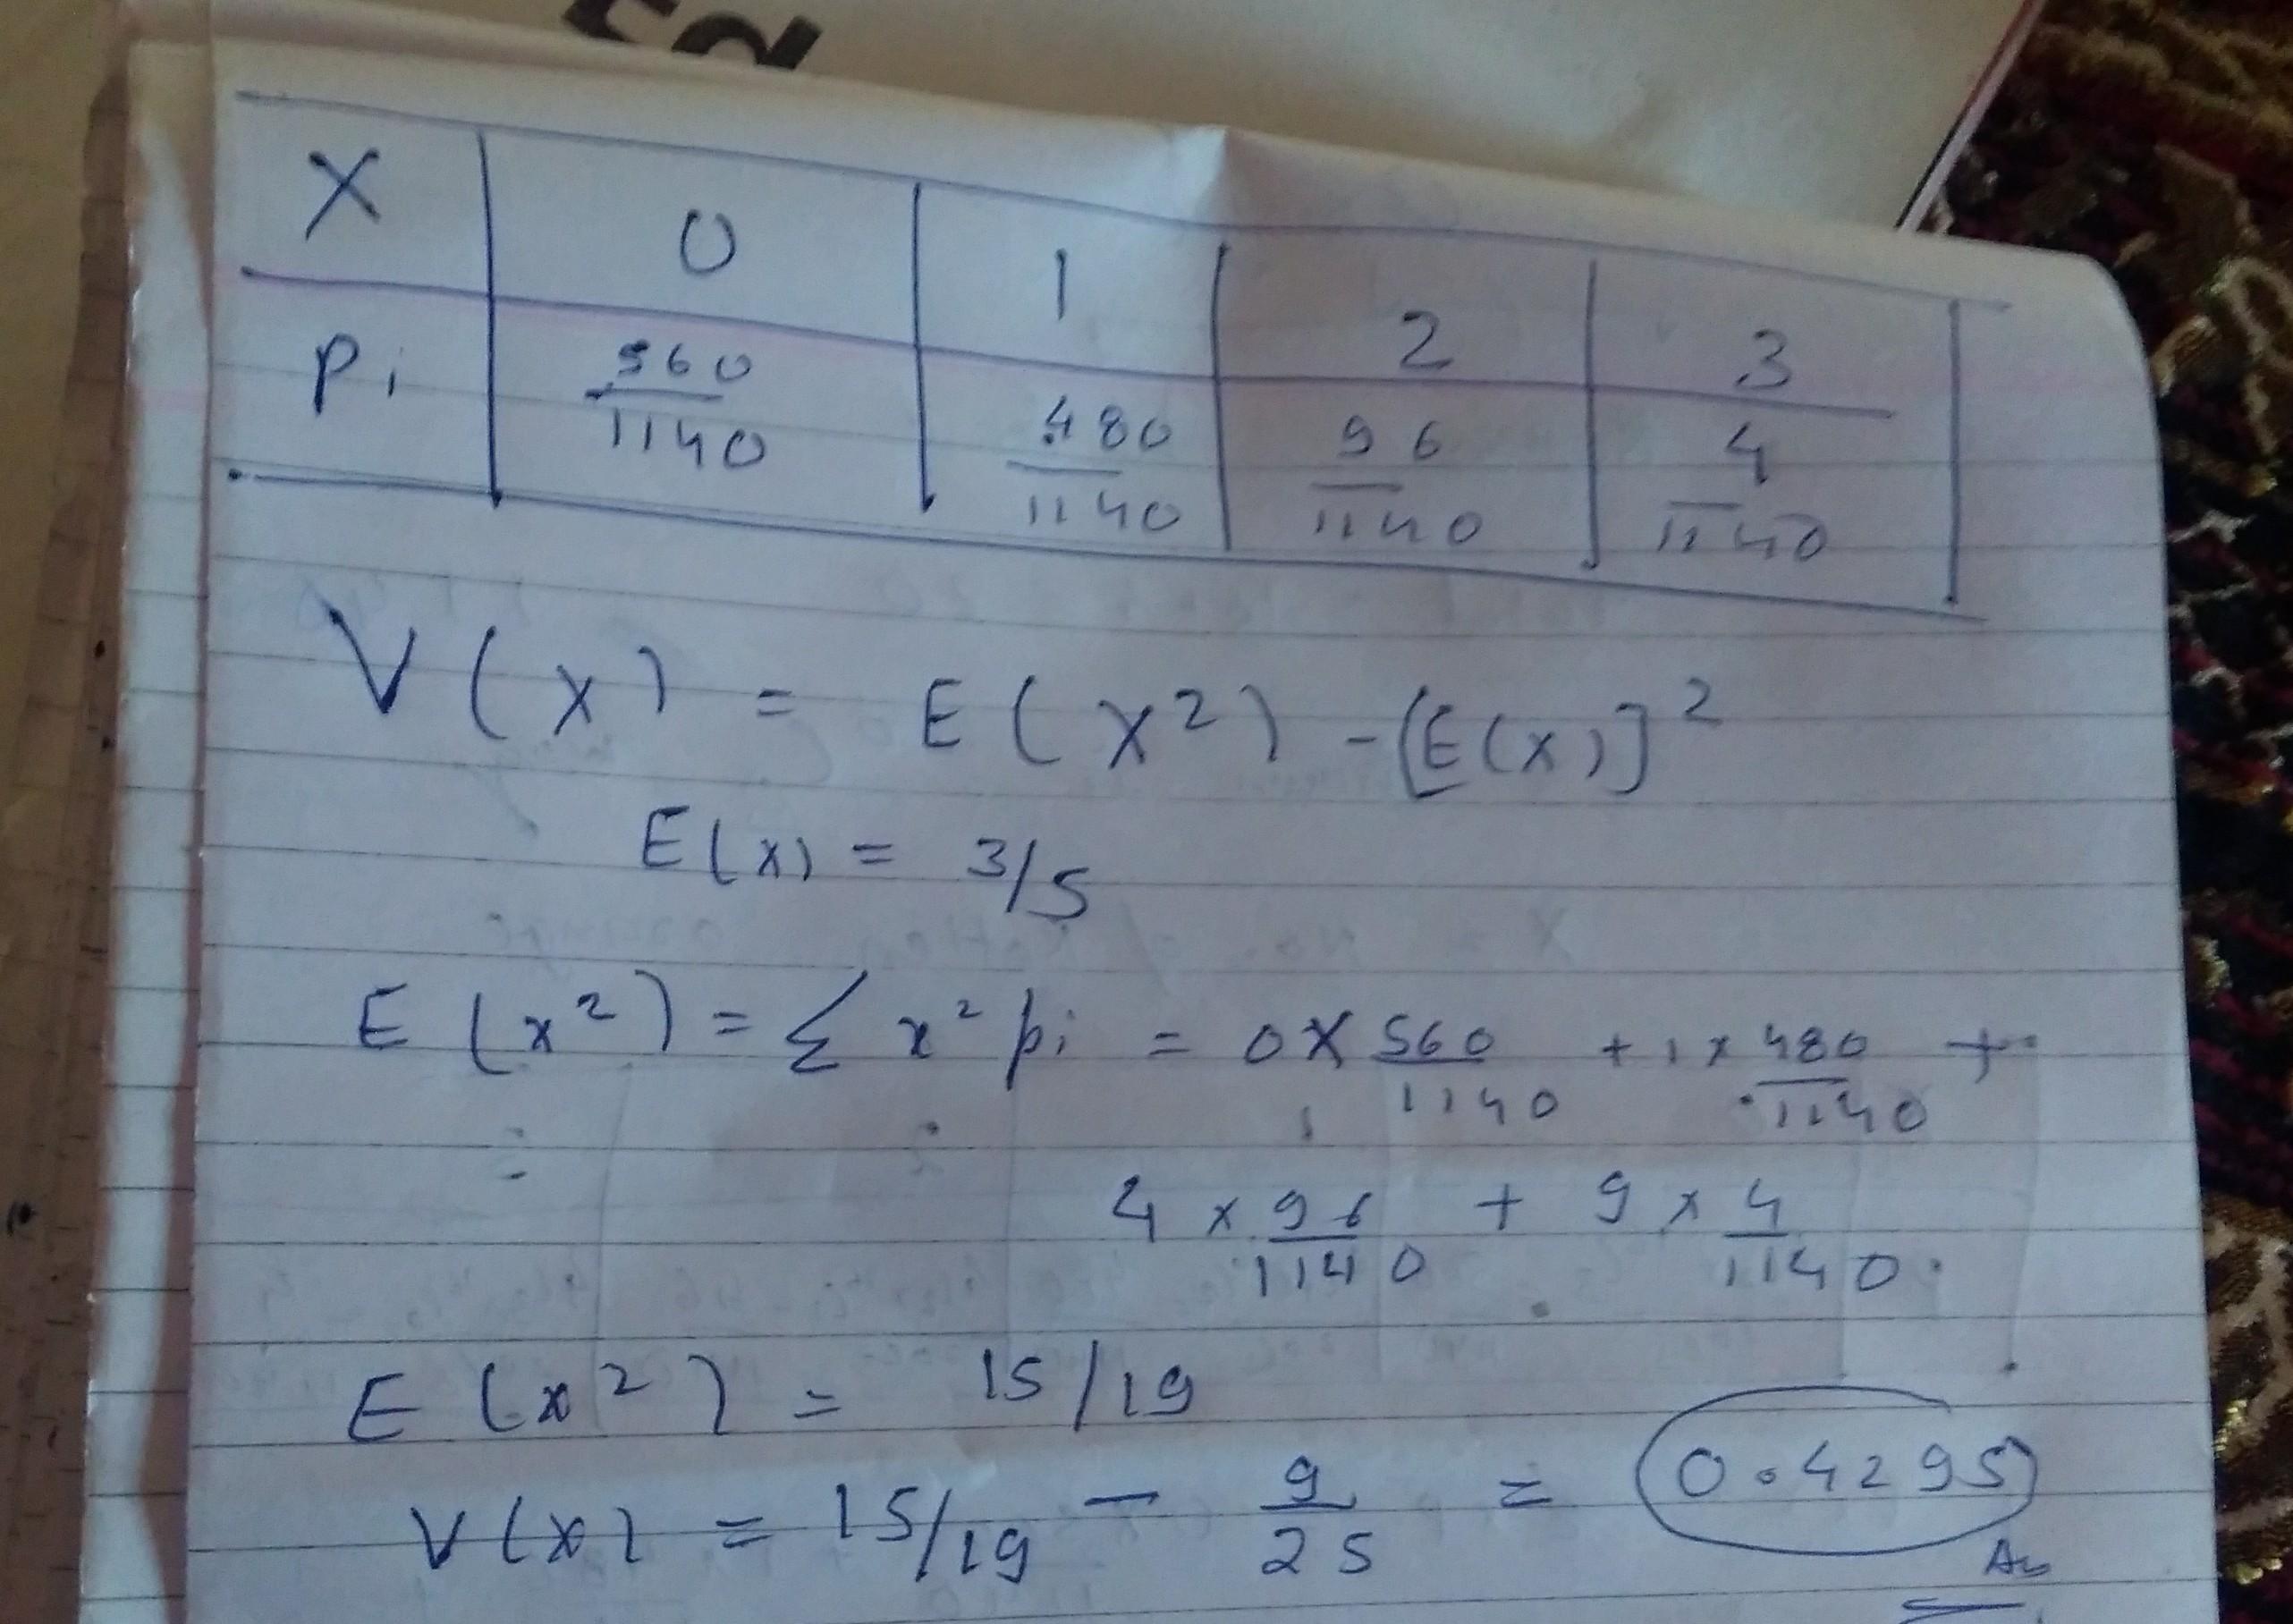 X | 0 | 1 | 2 | 3
Pi | 560/1140 | 480/1140 | 96/1140 | 4/1140
V(X) = E(X²) - [E(X)]²
E(X) = 3/5
E(x²) = Σ x² pi = 0 X 560/1140 + 1 x 480/1140 +
4 x 96/1140 + 9 x 4/1140
E(x²) = 15/19
V(X) = 15/19 - 9/25 = 0.4295